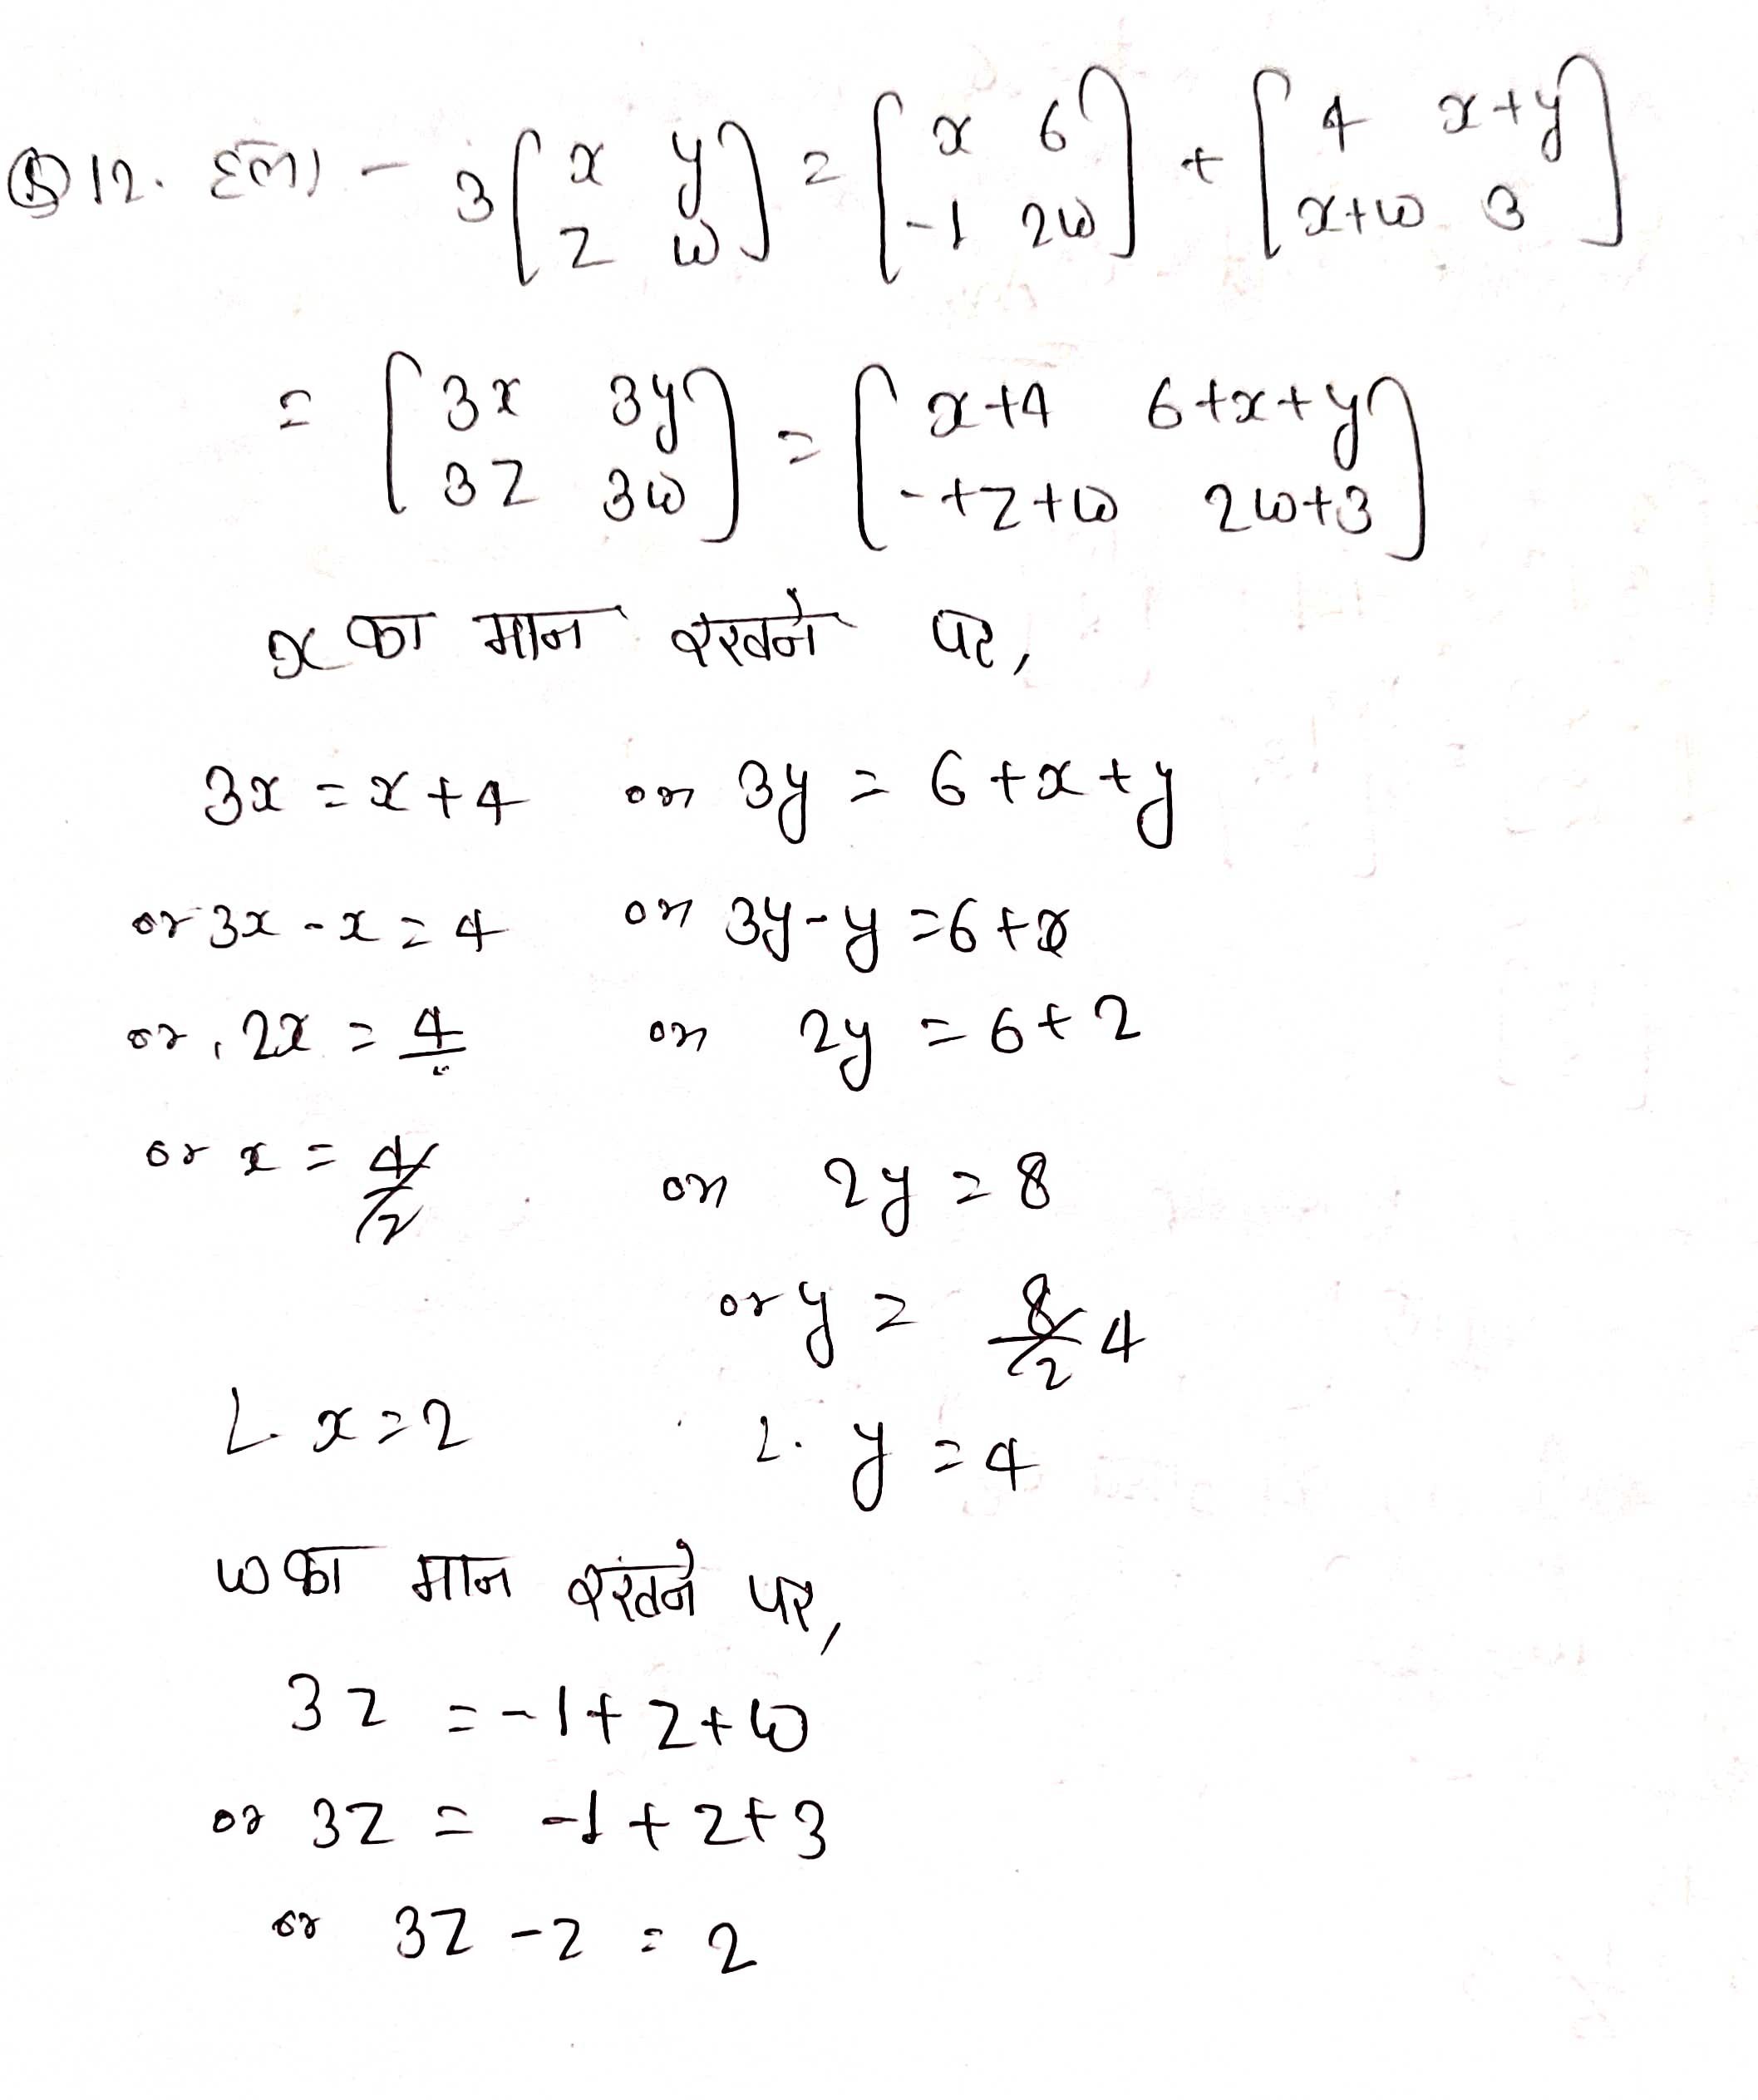 Q12. हल - 3[x y z w] = [x 6 -1 2w] + [4 x+y x+w 3]
= [3x 3y 3z 3w] = [x+4 6+x+y -+z+w 2w+3]
x का मान रखने पर,
3x = x+4 or 3y = 6+x+y
or 3x-x = 4 or 3y-y = 6+x
or, 2x = 4 or 2y = 6+2
or x = 4/2 or 2y = 8
or y = 8/2 4
∴ x = 2 ∴ y = 4
w का मान रखने पर,
3z = -1+z+w
or 3z = -1+z+3
or 3z-z = 2